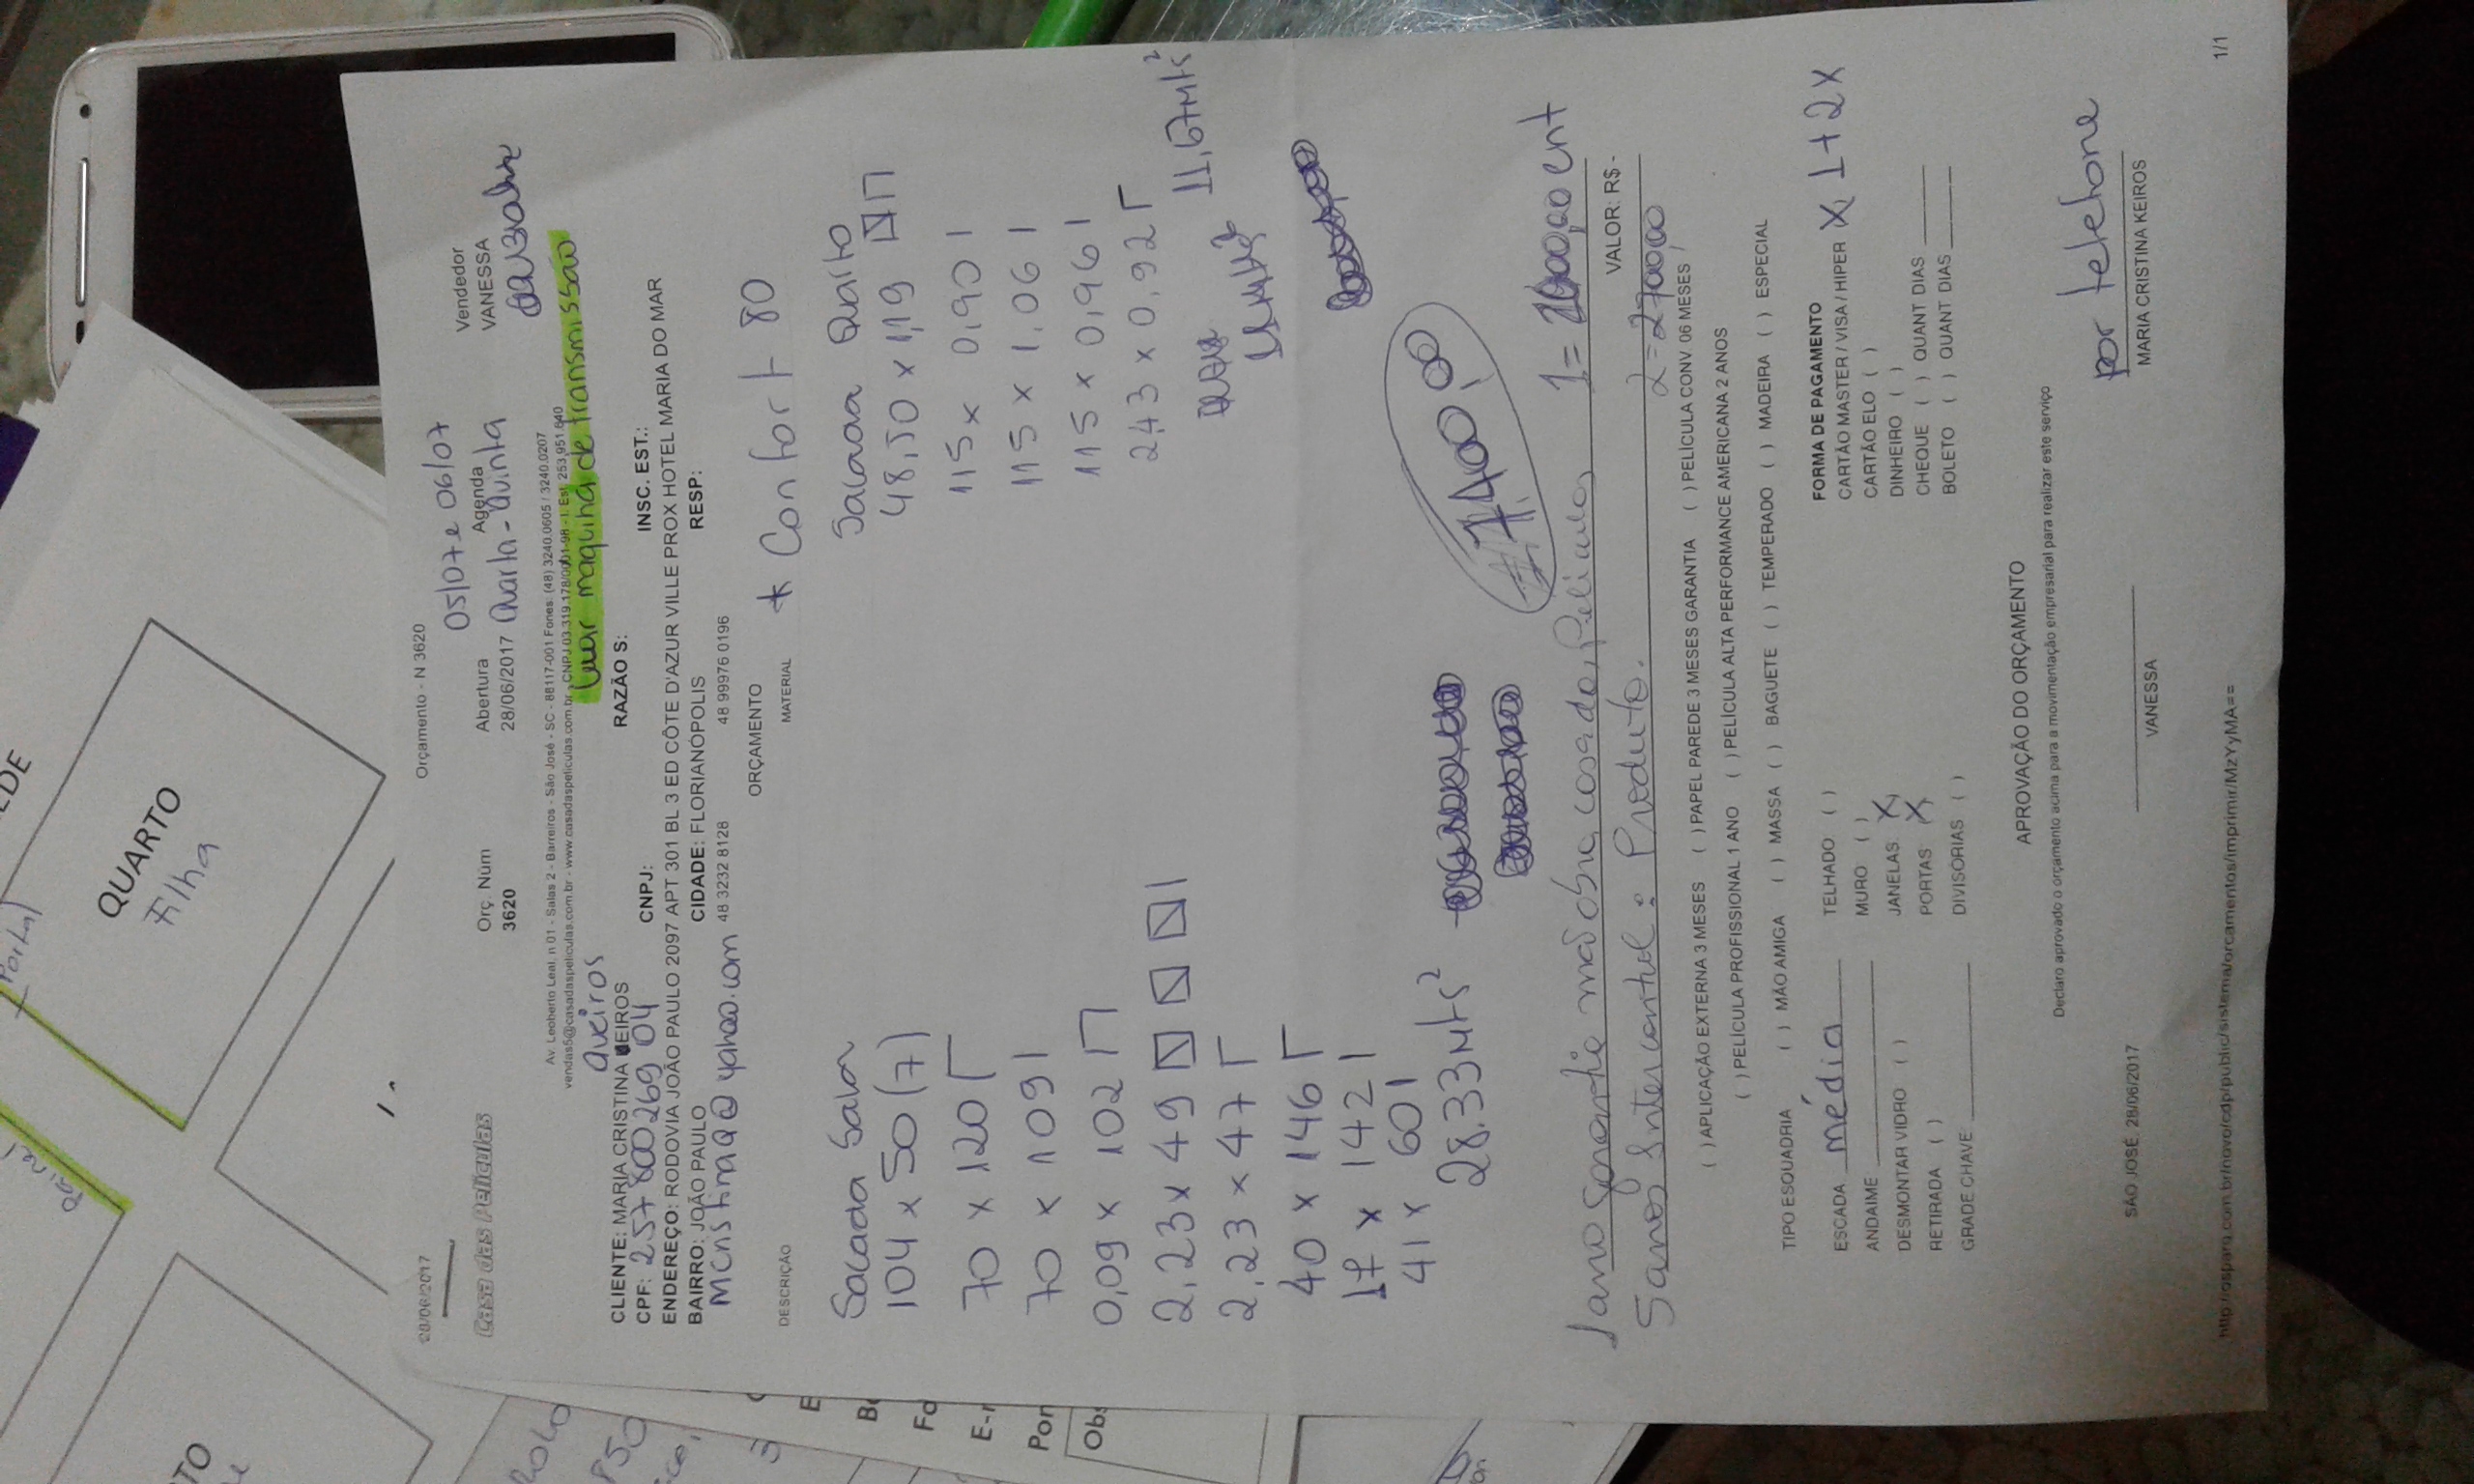 28/06/2017
Orçamento - N 3620
05/07 e 06/07
Casa das Películas
Orç. Núm
3620
Abertura
28/06/2017
Agenda
Quarta - Quinta
Vendedor
VANESSA
Av. Leoberto Leal, n 01 - Salas 2 - Barreiros - São José - SC - 88117-001 Fones: (48) 3240.0605 / 3240.0207
vendas5@casadaspeliculas.com.br - www.casadaspeliculas.com.br - CNPJ 03.319.178/0001-98 - I. Est. 253.951.640
maquina de transmissão
Queiros
CLIENTE: MARIA CRISTINA EIROS
RAZÃO S:
CPF: 257 800 269 04
CNPJ:
INSC. EST.:
ENDEREÇO: RODOVIA JOÃO PAULO 2097 APT 301 BL 3 ED CÔTE D'AZUR VILLE PROX HOTEL MARIA DO MAR
BAIRRO: JOÃO PAULO
CIDADE: FLORIANÓPOLIS
RESP:
@yahoo.com
48 3232 8128
48 99976 0196
ORÇAMENTO
DESCRIÇÃO
MATERIAL
* Confort 80
Sacada Sala
104 x 50 (7)
70 x 120
70 x 109
0,09 x 102
2,23 x 49
2,23 x 47
40 x 146
17 x 142
41 x 60
28.33 Mts²
Sacada Quarto
48,50 x 1,19
115 x 0,90
115 x 1,06
115 x 0,96
2,43 x 0,92
11,67 Mts²
7.400,00
1 ano garantia mão obra, casa das Películas
5 anos Intercontrol: Produto.
VALOR: R$ -
2 = 2700,00
( ) APLICAÇÃO EXTERNA 3 MESES ( ) PAPEL PAREDE 3 MESES GARANTIA ( ) PELÍCULA CONV. 06 MESES
( ) PELÍCULA PROFISSIONAL 1 ANO ( ) PELÍCULA ALTA PERFORMANCE AMERICANA 2 ANOS
TIPO ESQUADRIA ( ) MÃO AMIGA ( ) MASSA ( ) BAGUETE ( ) TEMPERADO ( ) MADEIRA ( ) ESPECIAL
ESCADA média
ANDAIME
DESMONTAR VIDRO ( )
RETIRADA ( )
GRADE CHAVE
TELHADO ( )
MURO ( )
JANELAS X
PORTAS X
DIVISORIAS ( )
FORMA DE PAGAMENTO
CARTÃO MASTER / VISA / HIPER X 1+2X
CARTÃO ELO ( )
DINHEIRO ( )
CHEQUE ( ) QUANT DIAS
BOLETO ( ) QUANT DIAS
APROVAÇÃO DO ORÇAMENTO
Declaro aprovado o orçamento acima para a movimentação empresarial para realizar este serviço
por telefone
SÃO JOSÉ, 28/06/2017
VANESSA
MARIA CRISTINA KEIROS
http://osparq.com.br/novo/cdp/public/sistema/orcamentos/imprimir/MzYyMA==
1/1
QUARTO
Filha
Obs